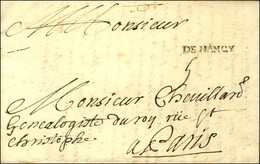 Monsieur
DE NANCY
5
Monsieur Chevillard
Genealogiste du roy rüe St
Christophe
a Paris